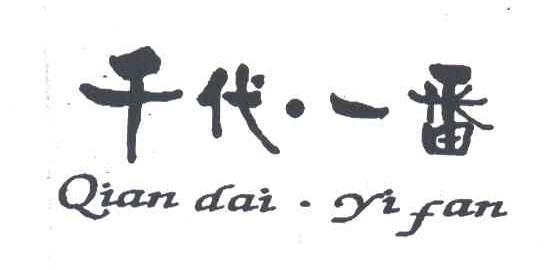 千代·一番
Qian dai · yi fan